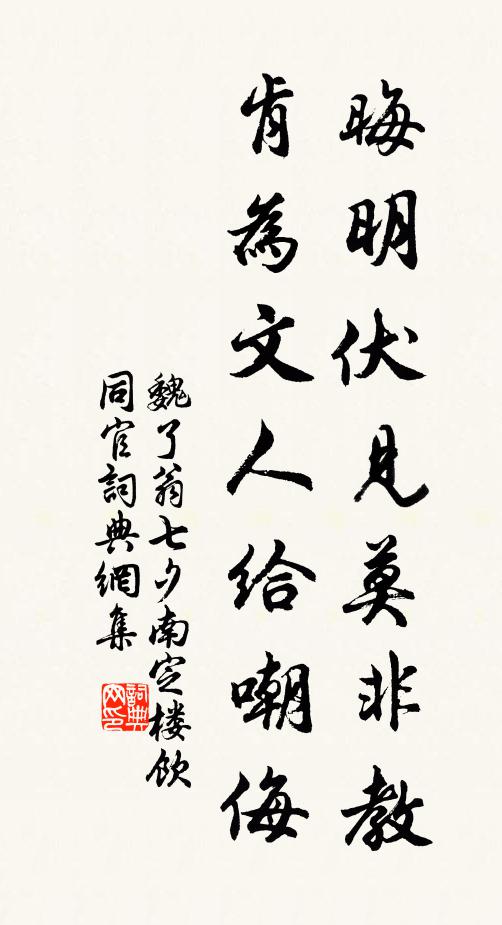 晦明伏見莫非教
肯為文人給嘲侮
魏了翁七夕南定楼飲
同官詞典網集
詞典
网印